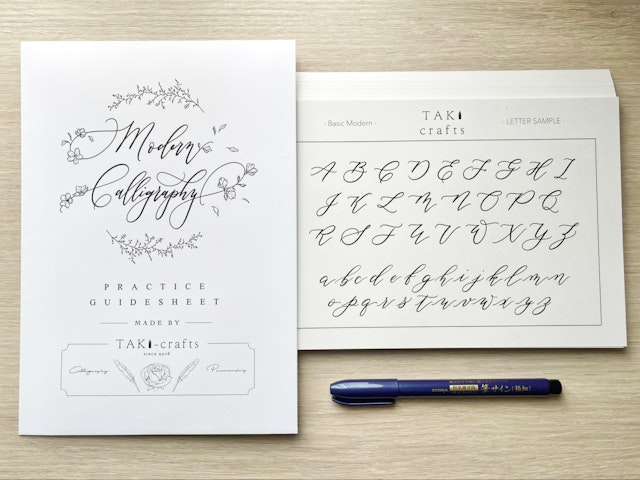 Modern
Calligraphy
PRACTICE
GUIDESHEET
MADE BY
TAKI-crafts
since 2016
Calligraphy
- Basic Modern -
TAKI
crafts
- LETTER SAMPLE -
A B C D E F G H I
J K L M N O P Q
R S T U V W X Y Z
a b c d e f g h i j k l m n
o p q r s t u v w x y z
筆サイン